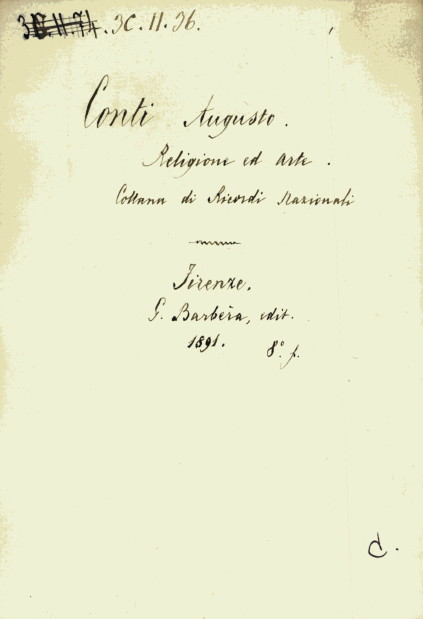 30.11.74. 3C.11.36.
Conti Augusto.
Religione ed Arte.
Collana di Ricordi Nazionali
Firenze.
G. Barbèra, edit.
1891. 8.° f.
C.